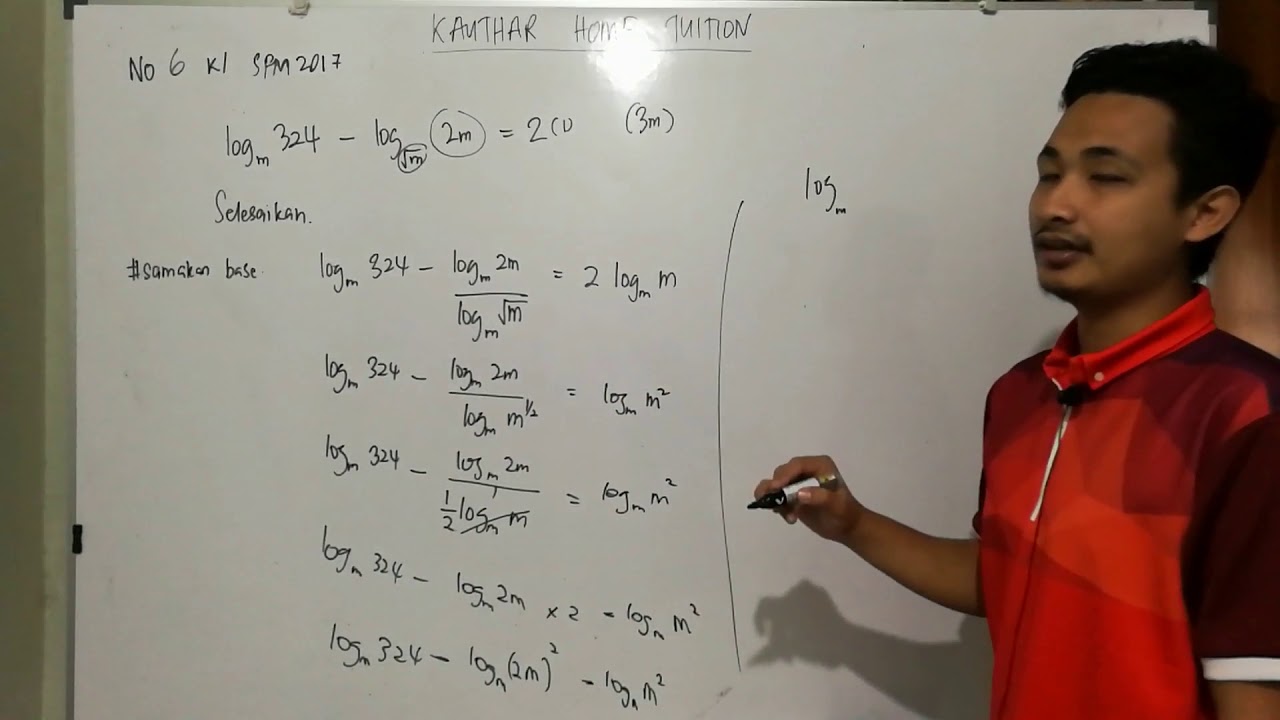 KAUTHAR HOME TUITION
No 6 K1 SPM 2017
log_m 324 − log_√m 2m = 2(1) (3m)
Selesaikan.
#samakan base log_m 324 − log_m 2m / log_m √m = 2 log_m m
log_m 324 − log_m 2m / log_m m^½ = log_m m²
log_m 324 − log_m 2m / ½ log_m m = log_m m²
log_m 324 − log_m 2m × 2 = log_m m²
log_m 324 − log_m (2m)² = log_m m²
log_m